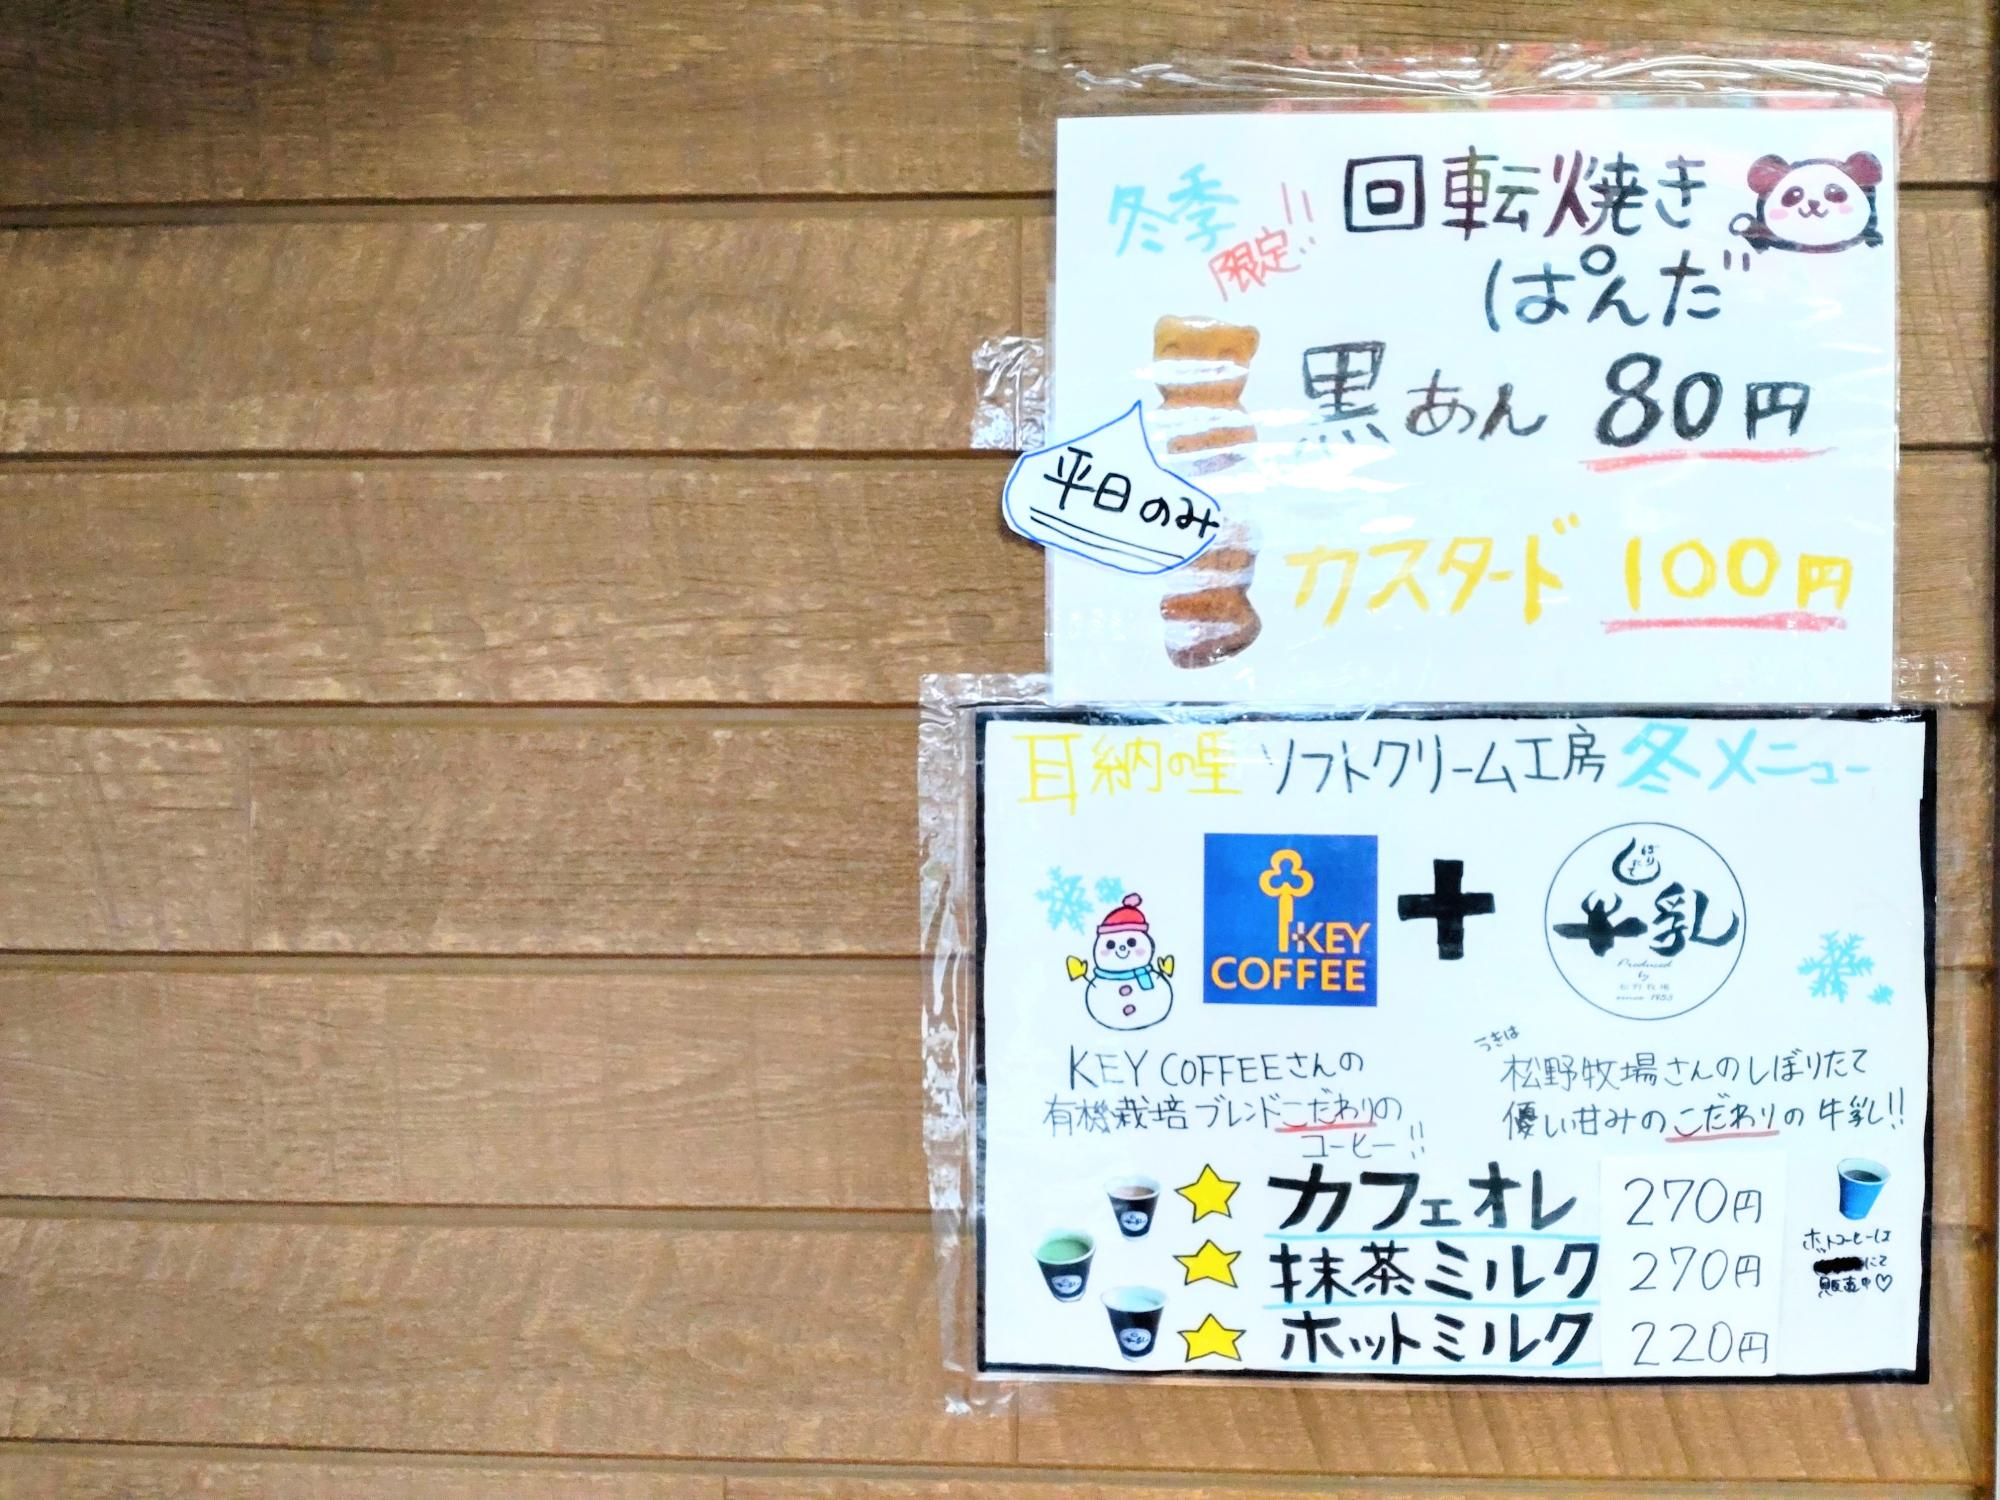 冬季
限定!!
回転焼き
ぱんだ
黒あん 80円
平日のみ
カスタード 100円
耳納の里 ソフトクリーム工房 冬メニュー
KEY
COFFEE
+
しぼりたて
牛乳
Produced
by
松野牧場
since 1953
KEY COFFEEさんの
有機栽培ブレンドこだわりの
コーヒー!!
うきは
松野牧場さんのしぼりたて
優しい甘みのこだわりの牛乳!!
カフェオレ 270円
抹茶ミルク 270円
ホットミルク 220円
ホットコーヒーは
にて
販売中♡